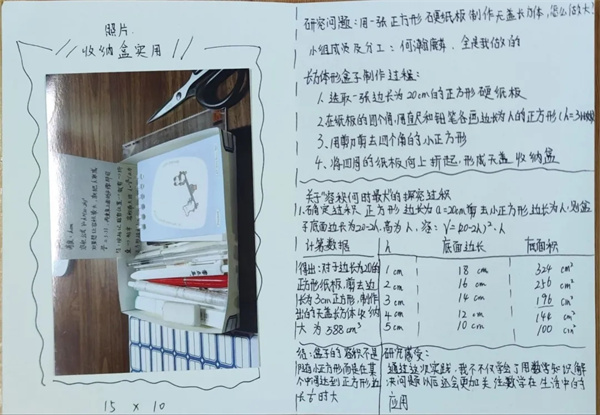 照片:
收纳盒实用
15 × 10
研究问题:用一张正方形硬纸板制作无盖长方体,怎么做大
小组成员及分工:何瀚麟、全是我做的
长方体形盒子制作过程:
1. 选取一张边长为20cm的正方形硬纸板
2.在纸板的四个角,用直尺和铅笔各画边长为h的正方形(h=3
3. 用剪刀剪去四个角的小正方形
4、将四周的纸板向上折起,形成无盖收纳盒
关于"容积何时最大"的探究过程
1.确定边长 正方形边长为a=20cm剪去小正方形边长为h,则盒
子底面边长为20-2h,高为h,容:V=(20-2h)²·h
计算数据 h 底面边长 底面积
1 cm 18 cm 324 cm²
2 cm 16 cm 256 cm²
3 cm 14 cm 196 cm²
4 cm 12 cm 144 cm²
5 cm 10 cm 100 cm²
得出:对于边长为20的
正方形纸板,剪去边
长为3cm正方形,制作
出的无盖长方体收纳
大为588cm³
结:盒子的容积不是
小正方形而是在某
个中间达到正方形边
长的时大
研究感受:
通过这次实践,我不仅学会了用数学知识解
决问题以后还会更加关注数学在生活中的
应用